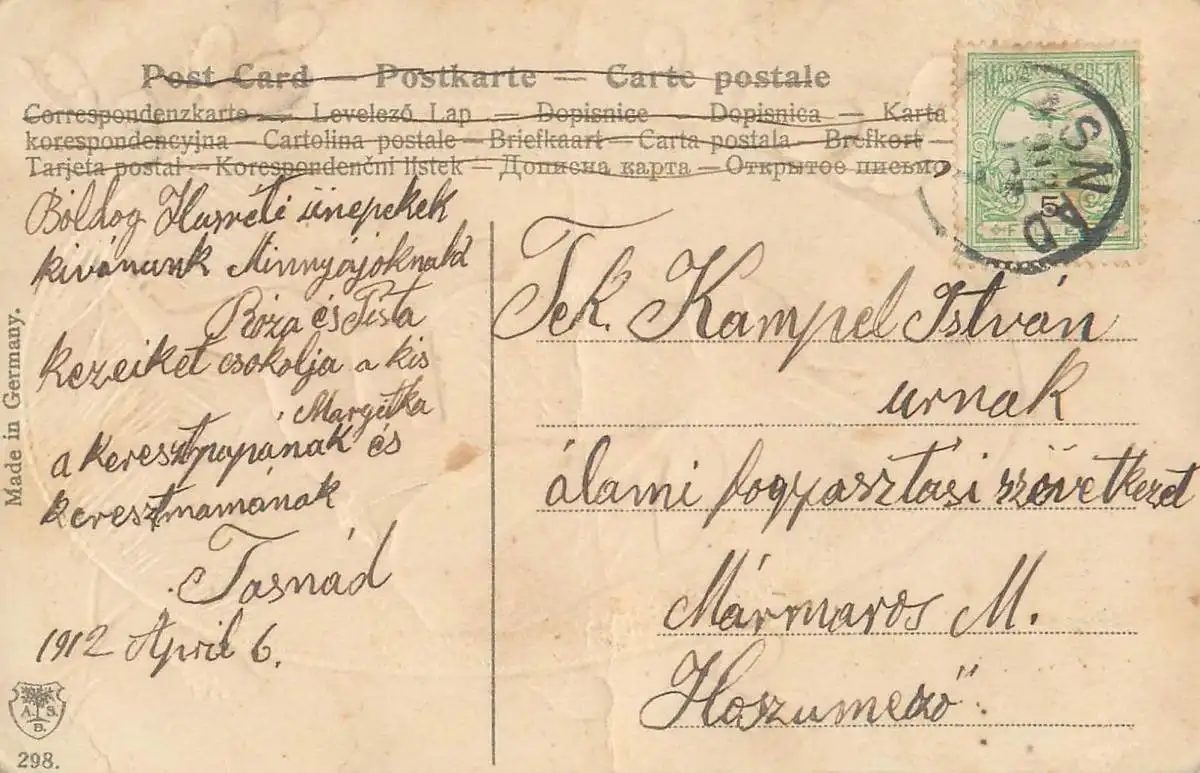 Post Card — Postkarte — Carte postale
Correspondenzkarte — Levelező Lap — Dopisnice — Dopisnica — Karta
korespondencyjna — Cartolina postale — Briefkaart — Carta postala — Brefkort —
Tarjeta postal — Korespondenčni listek — Дописна карта — Открытое письмо
Boldog Husvéti ünepekek
kivánunk Minnyájoknak
Róza és Pista
kezeiket csokolja a kis
Margitka
a keresztpapának és
keresztmamának
Tasnád
1912 April 6.
Made in Germany.
A. S.
B.
298.
MAGYAR KIR. POSTA
5
SNÁD
Tek. Kampel István
urnak
álami fogyasztási szövetkezet
Mármaros M.
Hoszumező